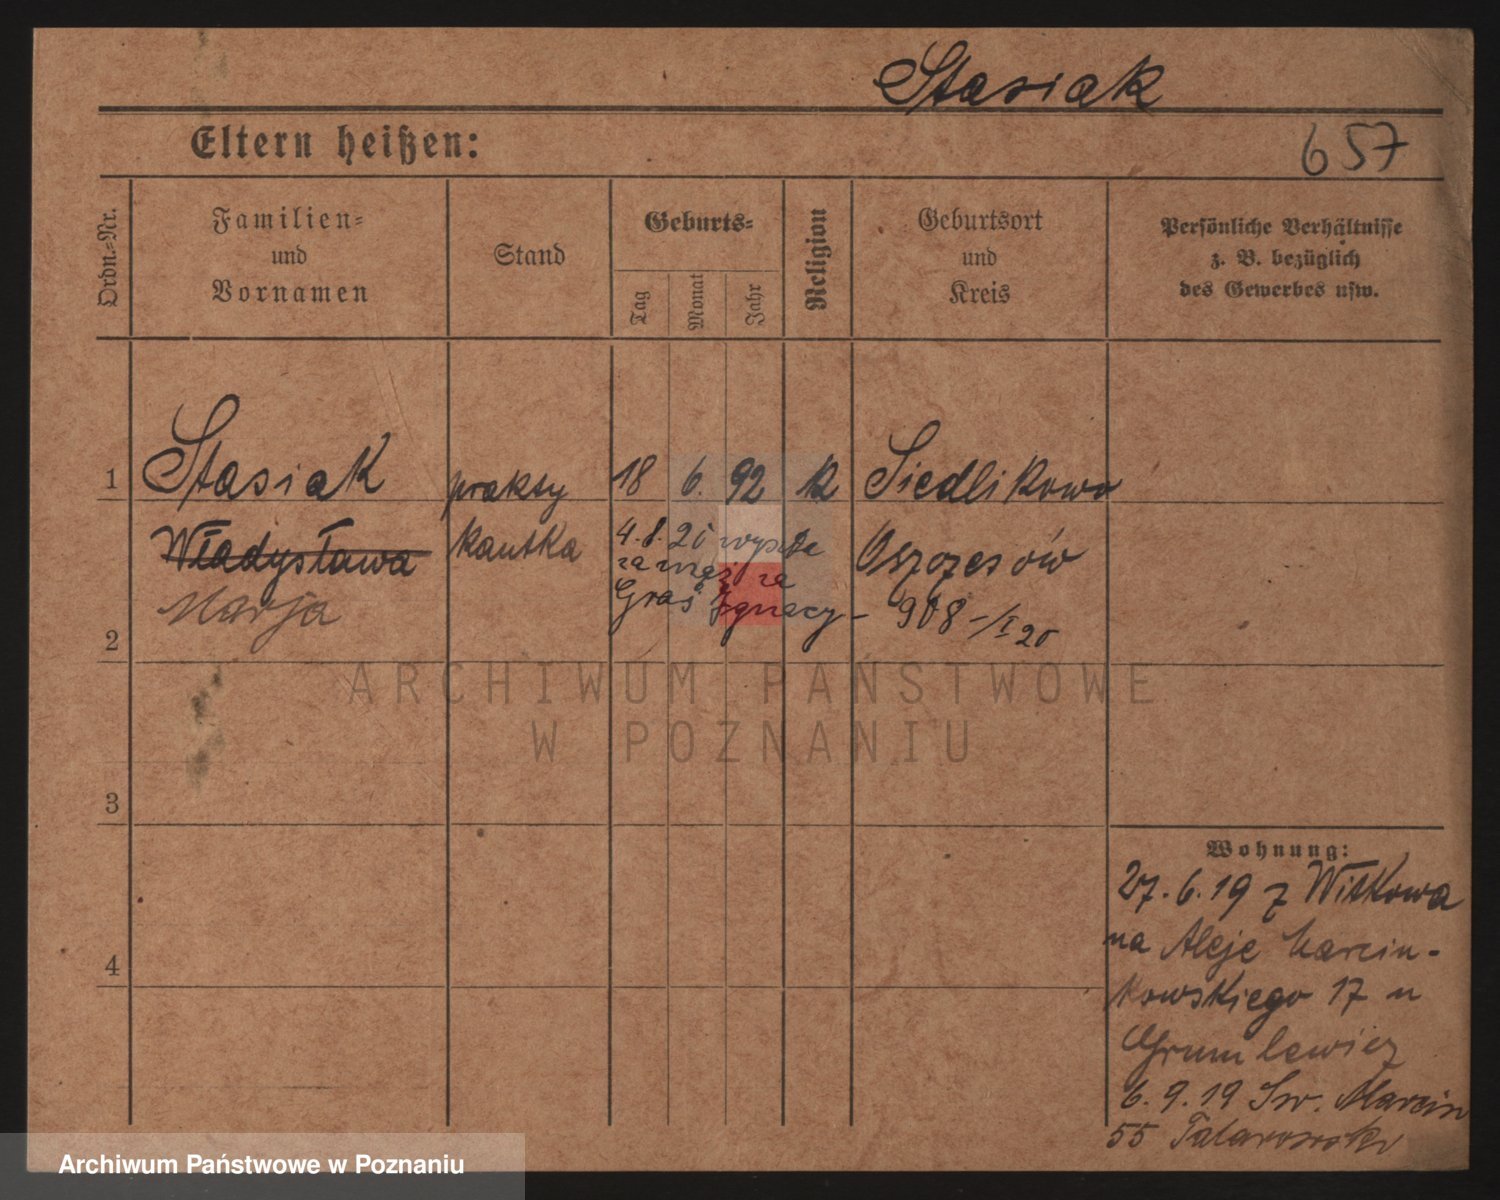 Stasiak
Eltern heißen:
657
Ordn.-Nr.
Familien-
und
Vornamen
Stand
Geburts-
Tag
Monat
Jahr
Religion
Geburtsort
und
Kreis
Persönliche Verhältnisse
z. B. bezüglich
des Gewerbes usw.
1
Stasiak
prakty
18
6.
92
k
Siedlikowo
Władysława
kantka
4.8.20 wyszła
za mąż za
Graś Ignacy –
Marja
908 -/I 20
2
ARCHIWUM PAŃSTWOWE
W POZNANIU
3
4
Wohnung:
27.6.19 z Witkowa
na Aleje Marcin-
kowskiego 17 u
6.9.19 Św. Marcin
55
Archiwum Państwowe w Poznaniu